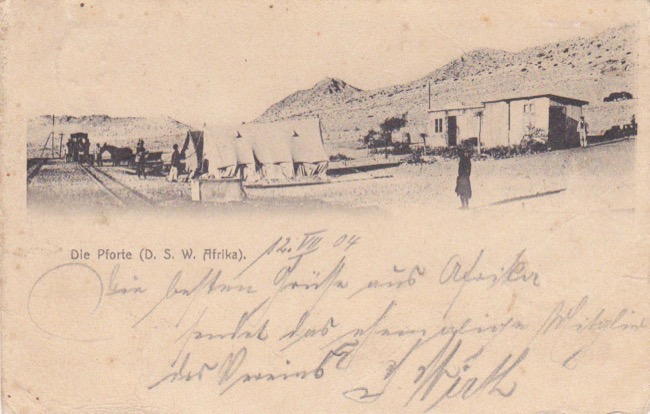 Die Pforte (D. S. W. Afrika).
12. VII 04
Die besten Grüße aus Afrika
sendet das ehemalige Mitglied
des Vereins J. Wirth